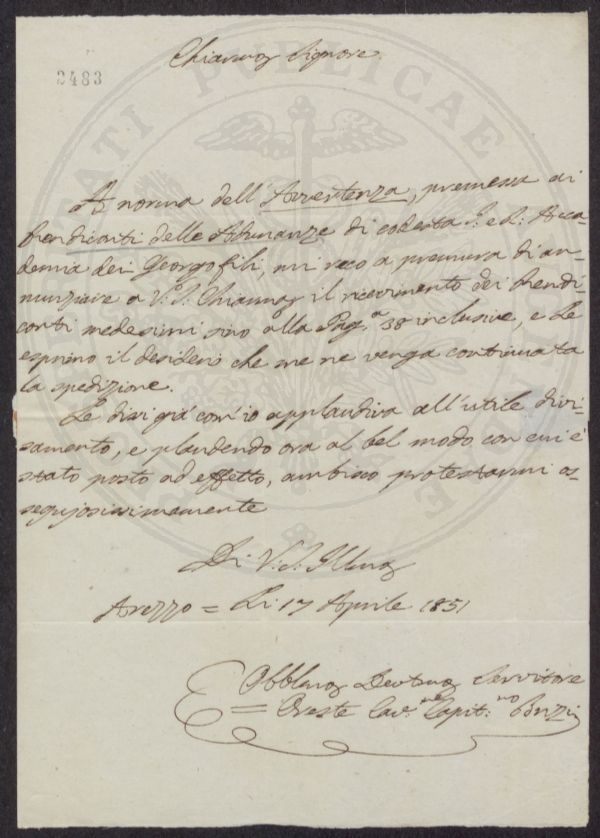 Chiarmo Signore.
2483
A norma dell'Avvertenza, premessa ai
Rendiconti delle Adunanze di codesta I. e R. Acca-
demia dei Georgofili, mi reco a premura di an-
nunziare a V. S. Chiarma il ricevimento dei Rendi-
conti medesimi sino alla Pag.a 38 inclusive, e Le
esprimo il desiderio che me ne venga continuata
la spedizione.
Le dissi già com'io applaudiva all'utile divi-
samento, e plaudendo ora al bel modo con cui è
stato posto ad effetto, ambisco protestarmi os-
sequiosissimamente
Di V. S. Illma
Arezzo = Li 17 Aprile 1851
Obblmo Devtmo Servitore
= Oreste Cav.re Capit.no Brizi